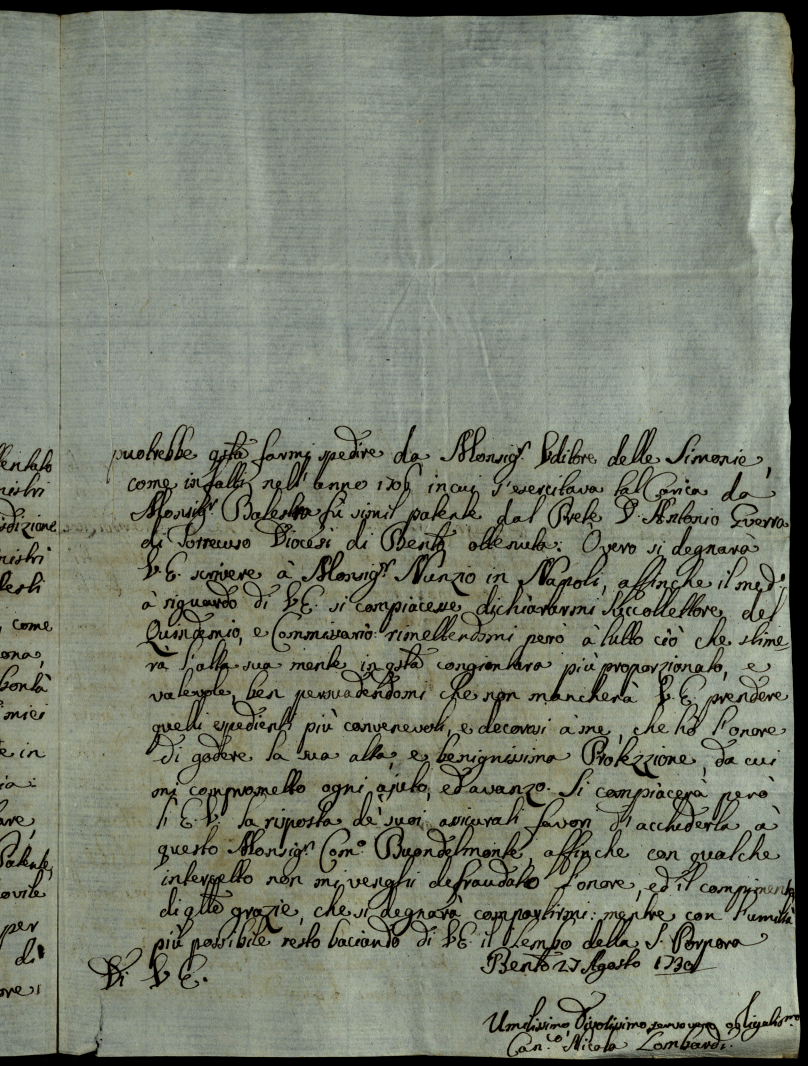 puotrebbe qstà farmi spedire da Monsig.r Uditore delle Simonie,
come infatti nell'anno 1706 in cui s'esercitava tal Carica da
Monsig.r Balestra fù simil patente dal Prete D. Antonio Guerra
di Torrecuso Diocesi di Bento ottenuta: Overo si degnarà
V.E. scrivere à Monsig.r Nunzio in Napoli, affinche il med.o
à riguardo di V.E. si compiacesse dichiararmi Succollettore del
Quindemio, e Commissario: rimettendomi però à tutto ciò che stime-
rà l'alta sua mente in qstà congiontura più proporzionato, e
valevole, ben persuadendomi che non mancherà V.E. prendere
quelli espedienti più convenevoli, e decorosi à me, che hò l'onore
di godere la sua alta, e benignissima Protezzione, da cui
mi comprometto ogni ajuto, ed avanzo. Si compiacerà però
l'E.V. la risposta de' suoi assicurati favori d'acchiderla à
questo Monsig.r Com.o Buondelmonte, affinche con qualche
intercetto non mi venghi defraudato l'onore, ed il compimento
di qtte grazie, che si degnarà compartirmi: mentre con l'umiltà
più possibile resto baciando di V.E. il Lembo della S. Porpora
Di V.E.
Bento 27 Agosto 1730
Umilissimo, Divotissimo servo vero obligatis.mo
Can.co Nicola Lombardi.
llentato
nistri
isdizione
nistri
lesti
, come
ona,
bontà
miei
e in
ia:
are,
Patente,
ovile
per
di
ore